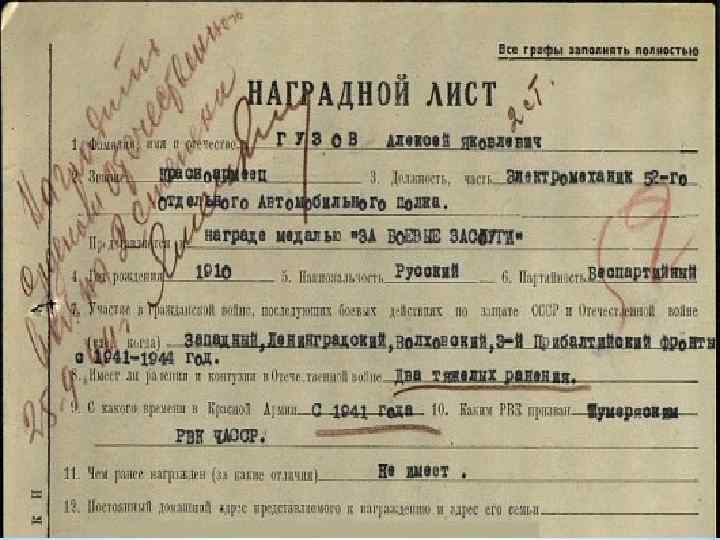 Все графы заполнять полностью
НАГРАДНОЙ ЛИСТ
2 ст.
1. Фамилия, имя и отчество ГУЗОВ Алексей Яковлевич
2. Звание Красноармеец 3. Должность, часть Электромеханик 52-го
Отдельного Автомобильного полка.
Представляется к награде медалью "ЗА БОЕВЫЕ ЗАСЛУГИ"
4. Год рождения 1910 5. Национальность Русский 6. Партийность Беспартийный
7. Участие в гражданской войне, последующих боевых действиях по защите СССР и Отечественной войне
(где, когда) Западный, Ленинградский, Волховский, 3-й Прибалтийский фронты
с 1941-1944 год.
8. Имеет ли ранения и контузии в Отечественной войне Два тяжелых ранения.
9. С какого времени в Красной Армии С 1941 года 10. Каким РВК призван Шумерлским
РВК ЧАССР.
11. Чем ранее награжден (за какие отличия) Не имеет .
12. Постоянный домашний адрес представляемого к награждению и адрес его семьи
Наградить
орденом Отечественной
войны 2 степени
52
К И